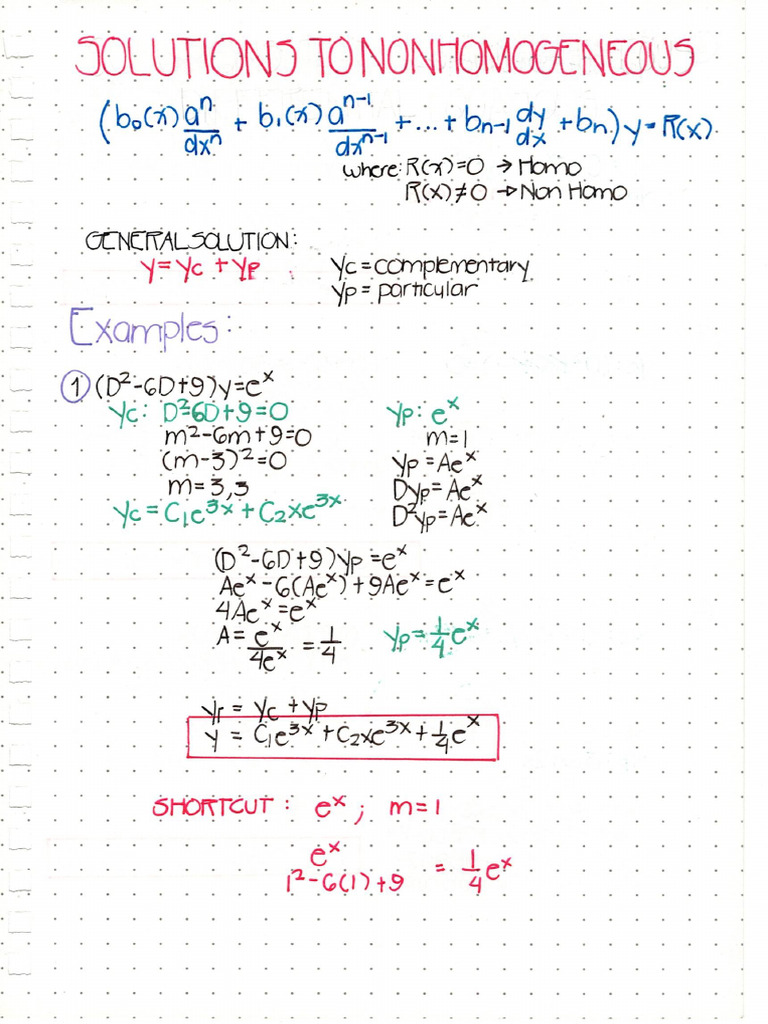 SOLUTIONS TO NONHOMOGENEOUS
(b₀(x) aⁿ/dxⁿ + b₁(x) aⁿ⁻¹/dxⁿ⁻¹ + ... + bn-1 dy/dx + bn) y = R(x)
where: R(x)=0 → Homo
R(x)≠0 → Non Homo
GENERAL SOLUTION:
y = yc + yp
yc = complementary
yp = particular
Examples:
① (D²-6D+9)y=eˣ
yc: D²-6D+9=0
m²-6m+9=0
(m-3)²=0
m=3,3
yc = C₁e³ˣ + C₂xe³ˣ
yp: eˣ
m=1
yp = Aeˣ
Dyp = Aeˣ
D²yp = Aeˣ
(D²-6D+9)yp = eˣ
Aeˣ-6(Aeˣ)+9Aeˣ = eˣ
4Aeˣ = eˣ
A = eˣ/4eˣ = 1/4
yp = 1/4 eˣ
yr = yc + yp
y = C₁e³ˣ + C₂xe³ˣ + 1/4 eˣ
SHORTCUT: eˣ; m=1
eˣ/1²-6(1)+9 = 1/4 eˣ